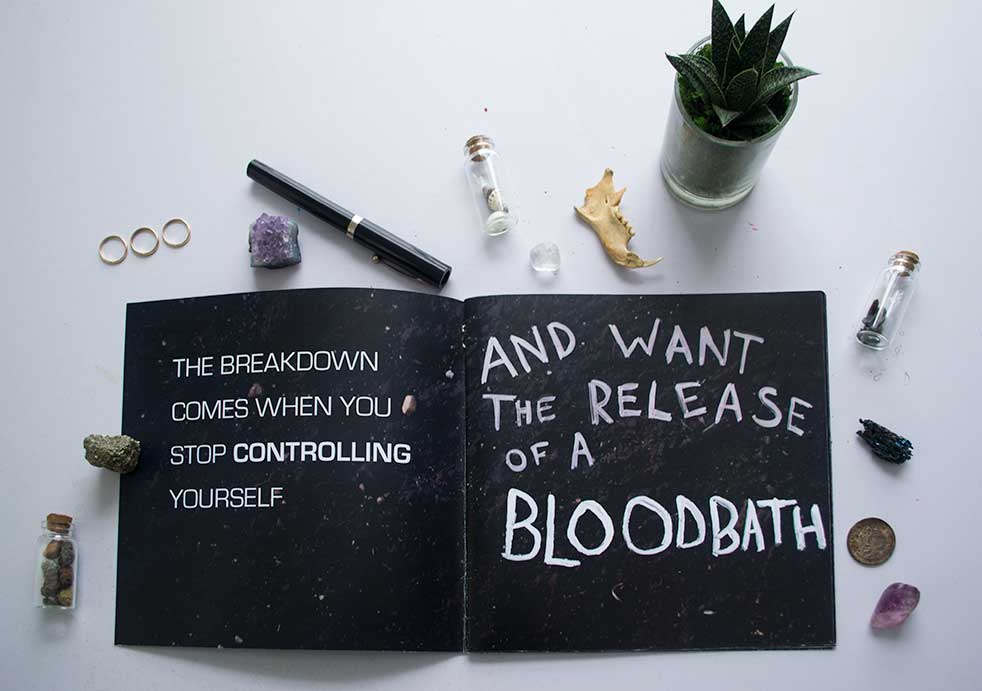 THE BREAKDOWN
COMES WHEN YOU
STOP CONTROLLING
YOURSELF
AND WANT
THE RELEASE
OF A
BLOODBATH